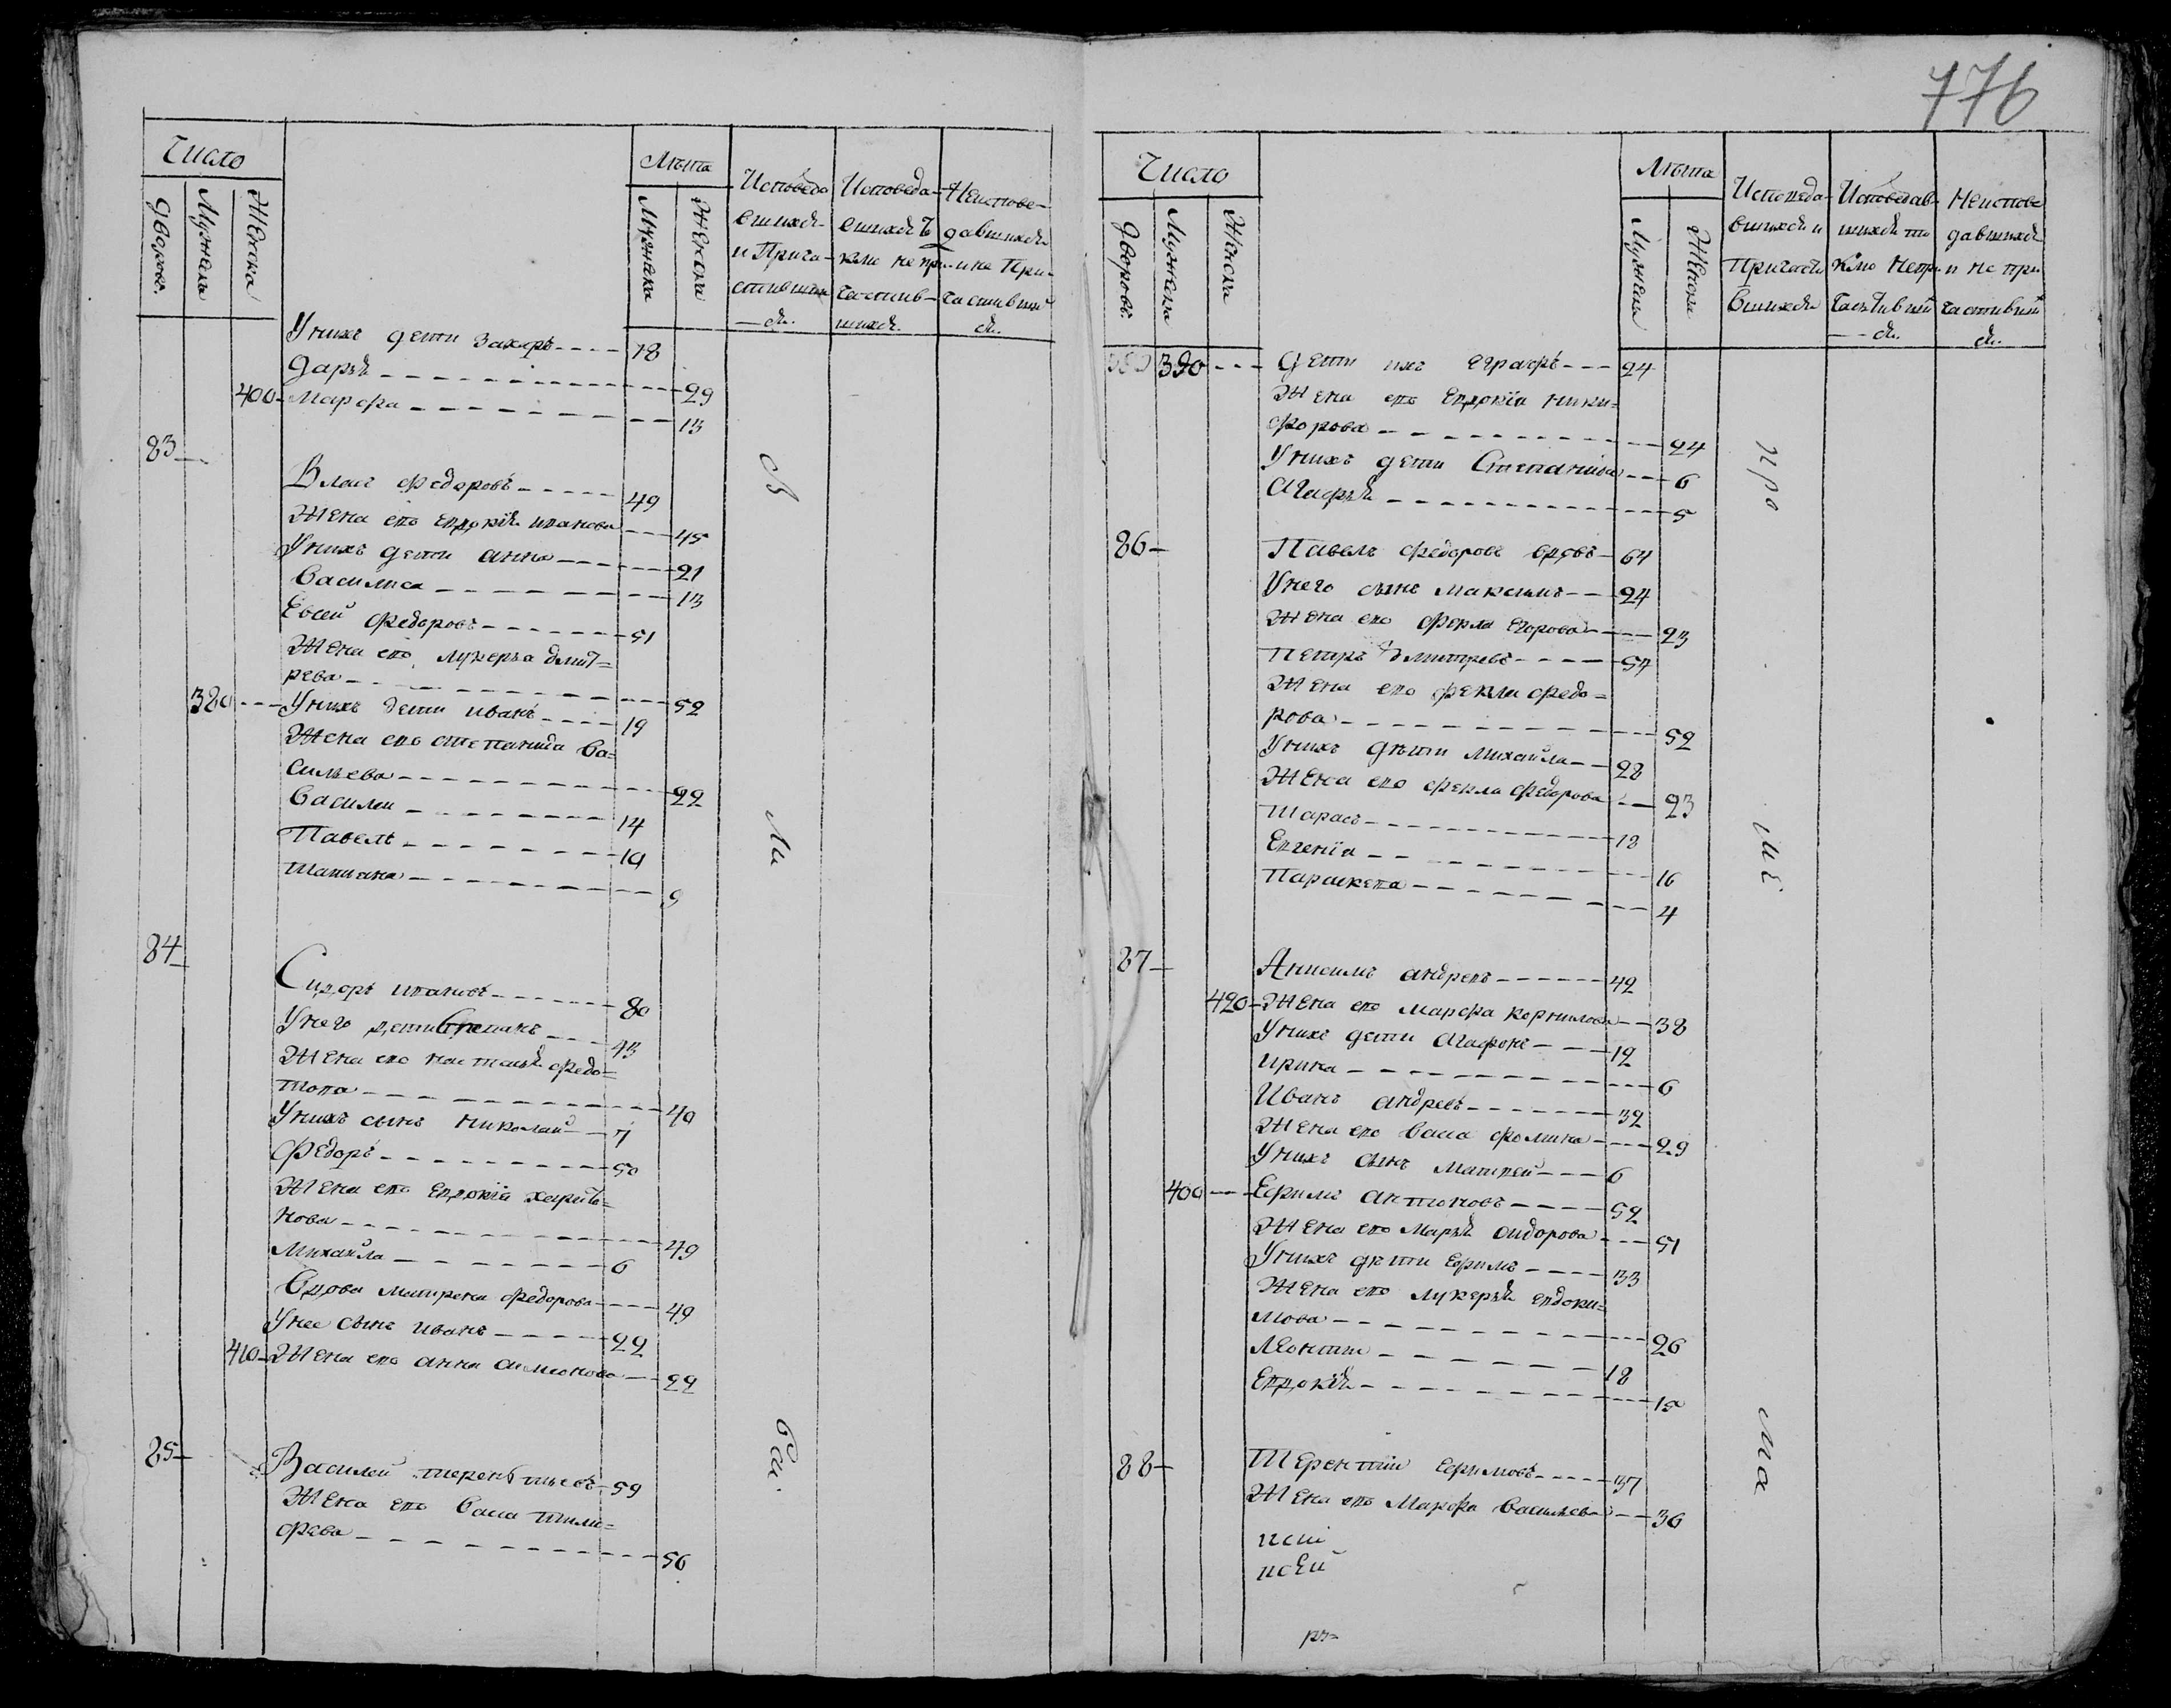 Число
Лѣта
дворовъ.
Мужеска
Женска
Мужеска
Женска
Исповеда
вшихся
и Прича-
стивших
ся.
Исповеда-
вшихся то
кмо не при-
частив-
шихся.
Неиспове-
давшихся
и не При-
частивши
ся.
Унихъ дети Захаръ 18
Дарья 29
400 Марфа 13
83
Власъ Федоровъ 49
Жена его Евдокія иванова 45
Унихъ дети анна 21
Василиса 13
Евсей Федоровъ 51
Жена его лукерья дмит=
рева 52
380 Унихъ дети иванъ 19
Жена его степанида Ва=
сильева 22
Василий 14
Павелъ 10
Татиана 9
84
Сидоръ ивановъ 80
Унего дети Степанъ 43
Жена его наталья федо=
това 40
Унихъ сынъ николай 7
Федоръ 50
Жена его Евдокія харито=
нова 49
Михайла 6
Вдова матрена федорова 49
Унее сынъ иванъ 22
410 Жена его анна симионова 22
85
Василей терентьевъ 59
Жена его Васа тимо=
фева 56
776
Число
Лѣта
дворовъ.
Мужеска
Женска
Мужеска
Женска
Исповеда-
вшихся и
Причасти
вшихся
Исповедав-
шихся то
кмо непри-
частивши
ся.
Неиспове
давшихся
и не при
частивши
ся.
390 Дети ихъ Евграфъ 24
Жена его Евдокія ники=
форова 24
Унихъ дети Степанида 6
Агафья 5
86
Павелъ федоровъ вдовъ 64
Унего сынъ Максимъ 24
Жена его Фекла Егорова 23
Петръ Дмитревъ 54
Жена его фекла федо=
рова 52
Унихъ дѣти Михайла 28
Жена его фекла федорова 23
Тарасъ 18
Евгенія 16
Параскева 4
87
Анисимъ андреевъ 42
420 Жена его Марфа корнилова 38
Унихъ дети Агафонъ 12
Ирина 6
Иванъ андреевъ 32
Жена его Васа фомина 29
Унихъ сынъ Матвей 6
400 Ефимъ антоновъ 52
Жена его Марья сидорова 51
Унихъ дѣти Ефимъ 33
Жена его лукерья евдоки=
мова 26
Леонтий 18
Евдокія 15
88
Терентій Ефимовъ 37
Жена его Марфа Васильева 36